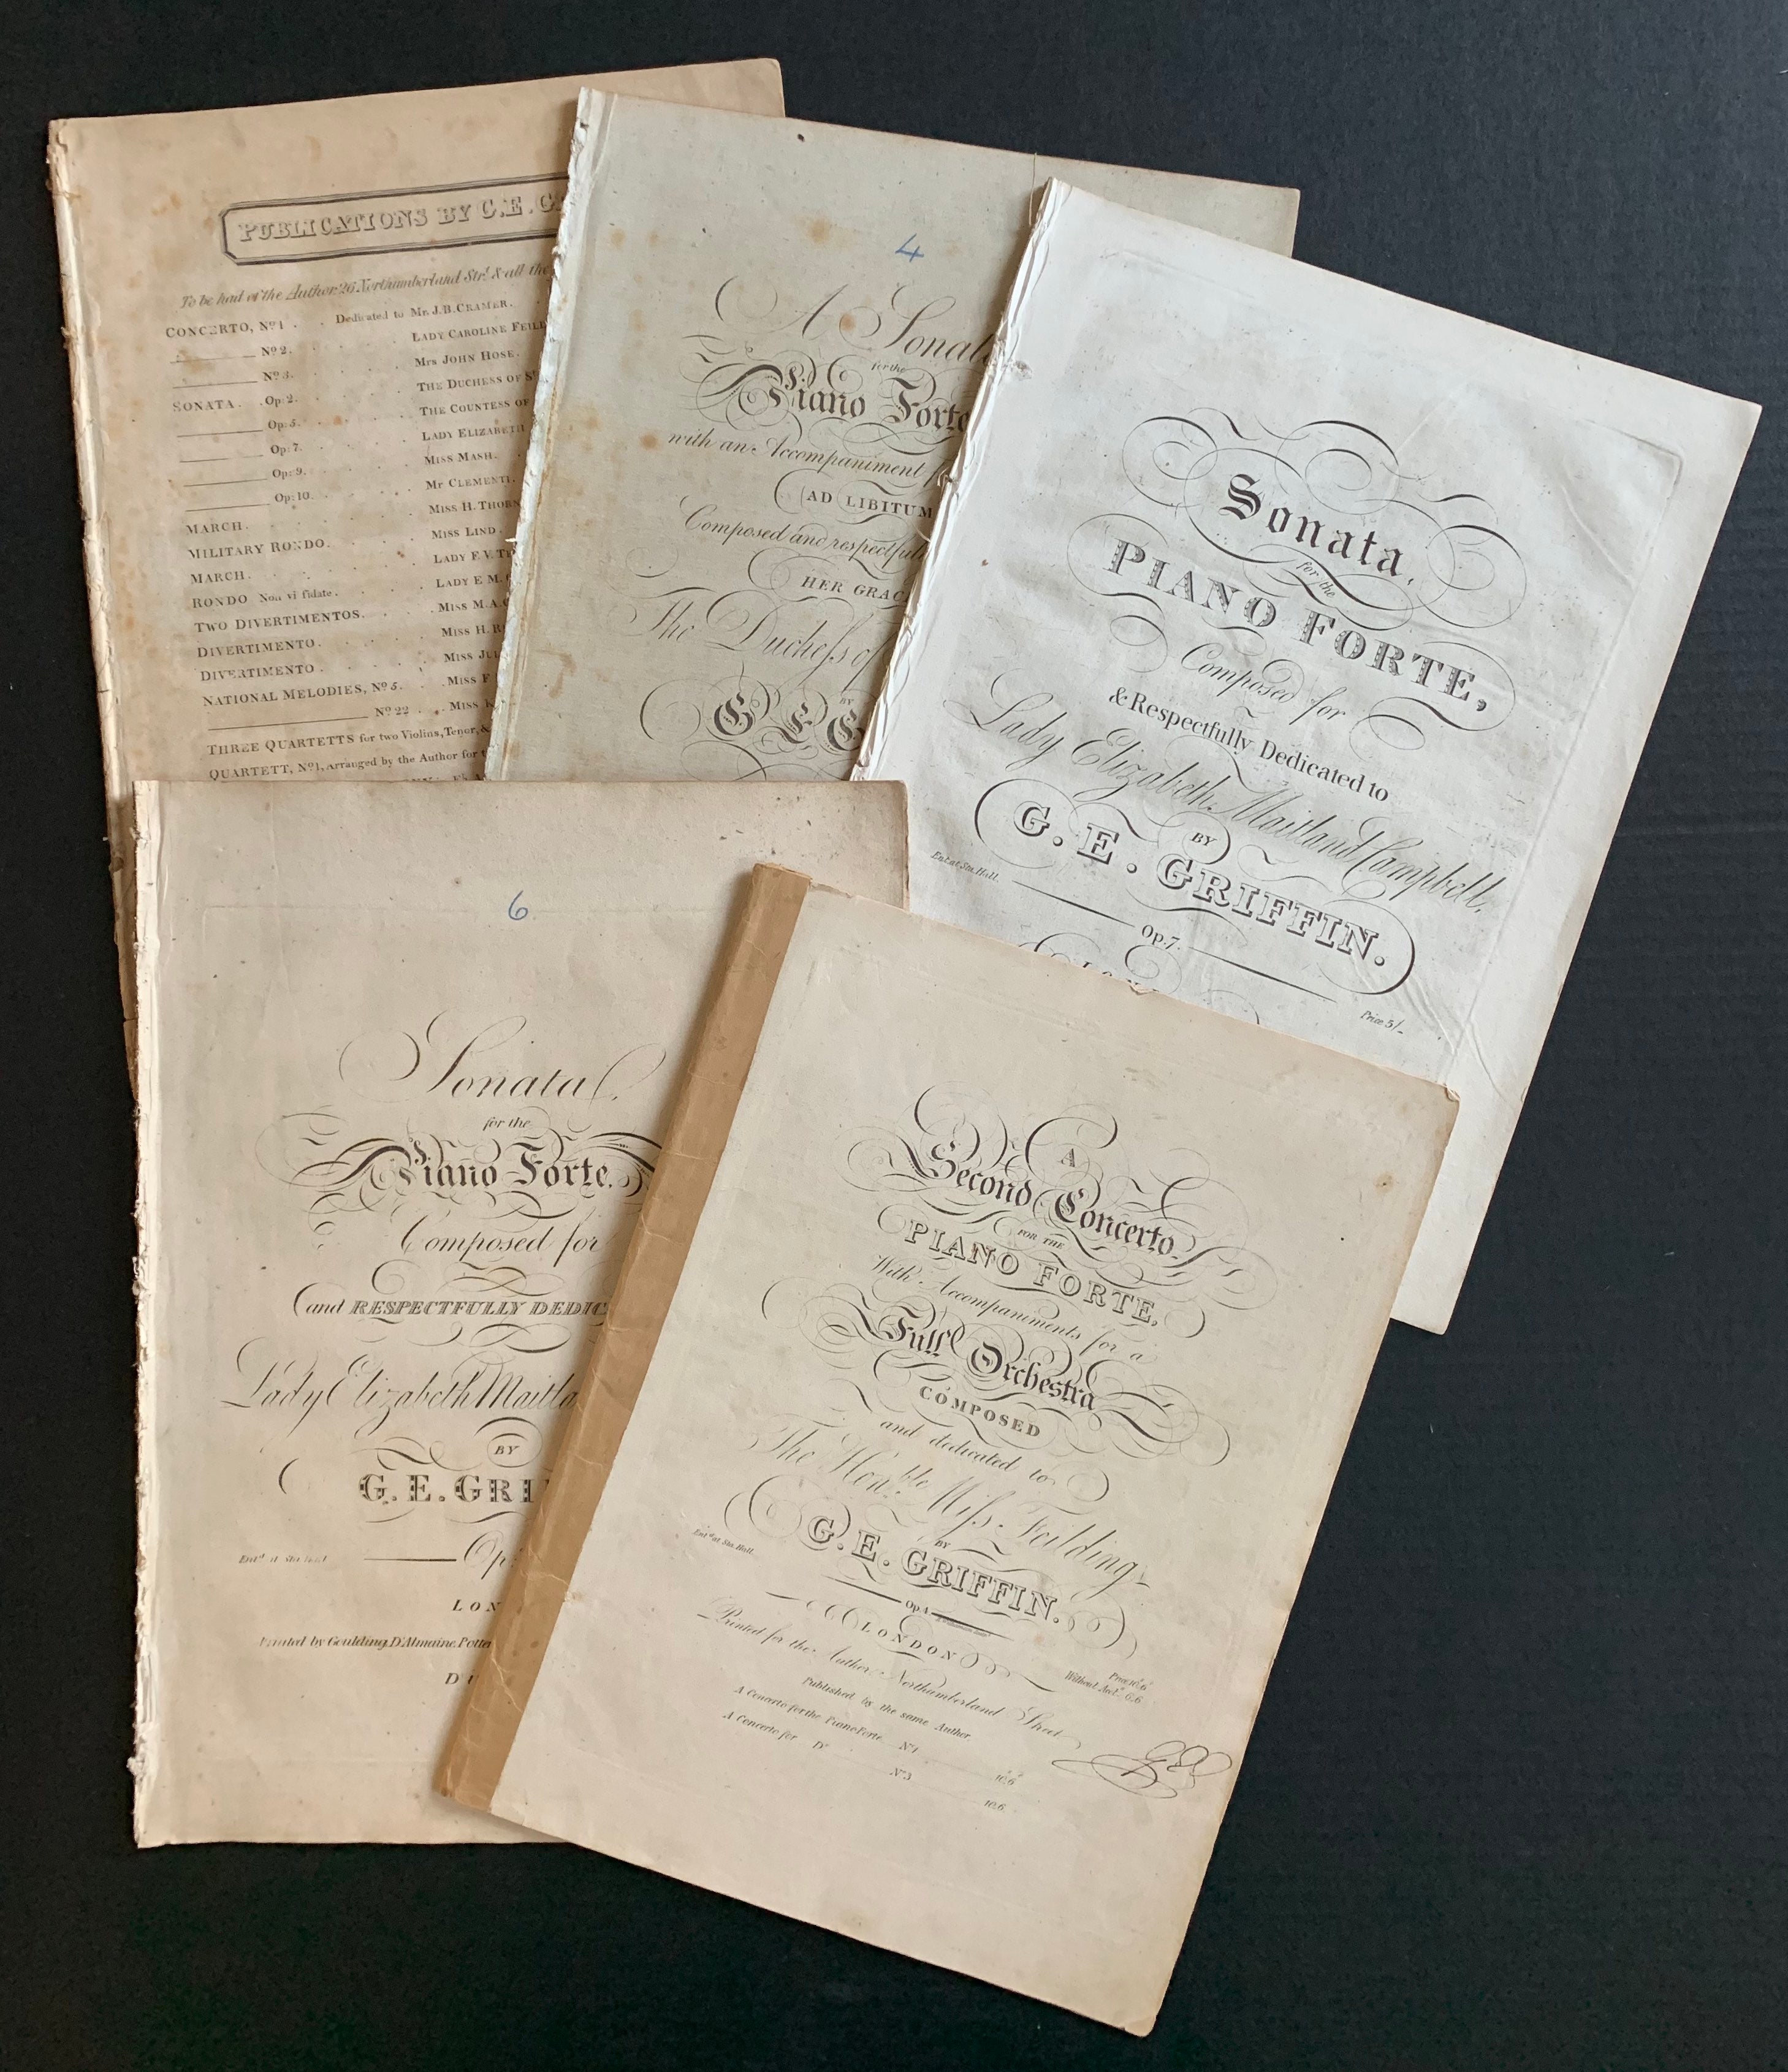 PUBLICATIONS BY G.E.
To be had of the Author 26 Northumberland Strt. & all the
CONCERTO, No. 1 . . Dedicated to Mr. J.B. CRAMER.
No. 2. LADY CAROLINE
No. 3. Mrs JOHN HOSE.
SONATA. Op: 2. THE DUCHESS OF
Op: 5. THE COUNTESS OF
Op: 7. LADY ELIZABETH
Op: 9. MISS MASH.
Op: 10. Mr CLEMENTI.
MARCH. MISS H. THORN
MILITARY RONDO. MISS LIND.
MARCH. LADY F. V.
RONDO Non vi fidate. LADY E M.
TWO DIVERTIMENTOS. MISS M.A.
DIVERTIMENTO. MISS H.
DIVERTIMENTO. MISS
NATIONAL MELODIES, No. 5. MISS F
No. 22 MISS
THREE QUARTETTS for two Violins, Tenor, &
QUARTETT, No. 1, Arranged by the Author for
4
A Sonat
for the
Piano Forte
with an Accompaniment
AD LIBITUM
Composed and respectfull
HER GRAC
The Duchess of
BY
G E G
Sonata,
for the
PIANO FORTE,
Composed for
& Respectfully Dedicated to
Lady Elizabeth Maitland Campbell.
BY
G. E. GRIFFIN.
Ent. at Sta. Hall.
Op. 7.
Price 5/-
6
Sonata
for the
Piano Forte.
Composed for
and RESPECTFULLY DEDIC
Lady Elizabeth Maitla
BY
G. E. GRI
Entd. at Sta. Hall
Op
LON
Printed by Goulding, D'Almaine, Potter
A
Second Concerto
FOR THE
PIANO FORTE,
With Accompaniments for a
Full Orchestra
COMPOSED
and dedicated to
The Honble. Miss Feilding
BY
G. E. GRIFFIN.
Entd. at Sta. Hall.
Op 4
LONDON
Price 10.6
Without Acct. 6.6
Printed for the Author Northumberland Street
Published by the same Author
A Concerto for the Piano Forte No. 1 10.6
A Concerto for Do. No. 3 10.6